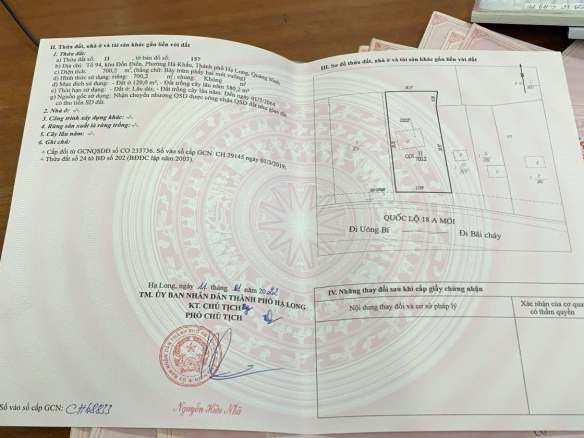 II. Thửa đất, nhà ở và tài sản khác gắn liền với đất
1. Thửa đất:
a) Thửa đất số: 11 , tờ bản đồ số: 157
b) Địa chỉ: Tổ 94, khu Đồn Điền, Phường Hà Khẩu, Thành phố Hạ Long, Quảng Ninh
c) Diện tích: 700,2 m², (bằng chữ: Bảy trăm phẩy hai mét vuông)
d) Hình thức sử dụng: riêng: 700,2 m²; chung: Không
đ) Mục đích sử dụng: - Đất ở 120,0 m², - Đất trồng cây lâu năm 580,2 m²
e) Thời hạn sử dụng: - Đất ở: Lâu dài; - Đất trồng cây lâu năm: Đến ngày 01/7/2064
g) Nguồn gốc sử dụng: Nhận chuyển nhượng QSD đất được công nhận QSD đất như giao đất
có thu tiền SD đất.
2. Nhà ở: -/-.
3. Công trình xây dựng khác: -/-.
4. Rừng sản xuất là rừng trồng: -/-.
5. Cây lâu năm: -/-.
6. Ghi chú:
+ Cấp đổi từ GCNQSDĐ số CO 233736. Số vào sổ cấp GCN: CH 29145 ngày 01/3/2019;
+ Thửa đất số 24 tờ BĐ số 202 (BĐĐC lập năm 2003).
Hạ Long, ngày 11 tháng năm 2022
TM. ỦY BAN NHÂN DÂN THÀNH PHỐ HẠ LONG
KT. CHỦ TỊCH
PHÓ CHỦ TỊCH
Nguyễn Hữu Nhã
Số vào sổ cấp GCN: CH68833
III. Sơ đồ thửa đất, nhà ở và tài sản khác gắn liền với đất
11
700,2
QUỐC LỘ 18 A MỚI
Đi Uông Bí
Đi Bãi cháy
IV. Những thay đổi sau khi cấp giấy chứng nhận
Nội dung thay đổi và cơ sở pháp lý
Xác nhận của cơ quan
có thẩm quyền